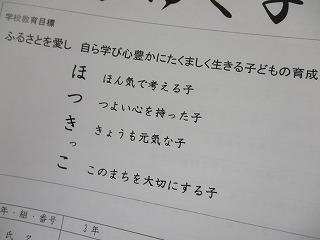 学校教育目標
ふるさとを愛し 自ら学び心豊かにたくましく生きる子どもの育成
ほ ほん気で考える子
つ つよい心を持った子
き きょうも元気な子
っ
こ このまちを大切にする子
年・組・番号 3年
氏名